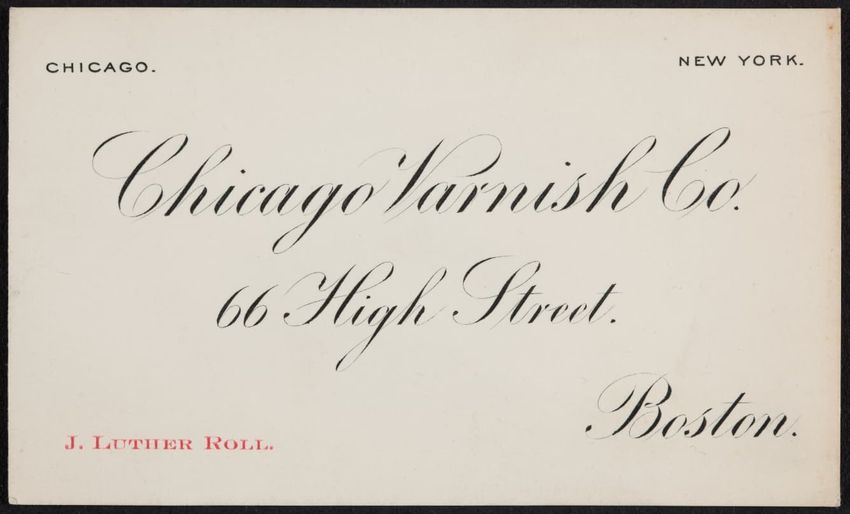 CHICAGO.
NEW YORK.
Chicago Varnish Co.
66 High Street.
Boston.
J. LUTHER ROLL.